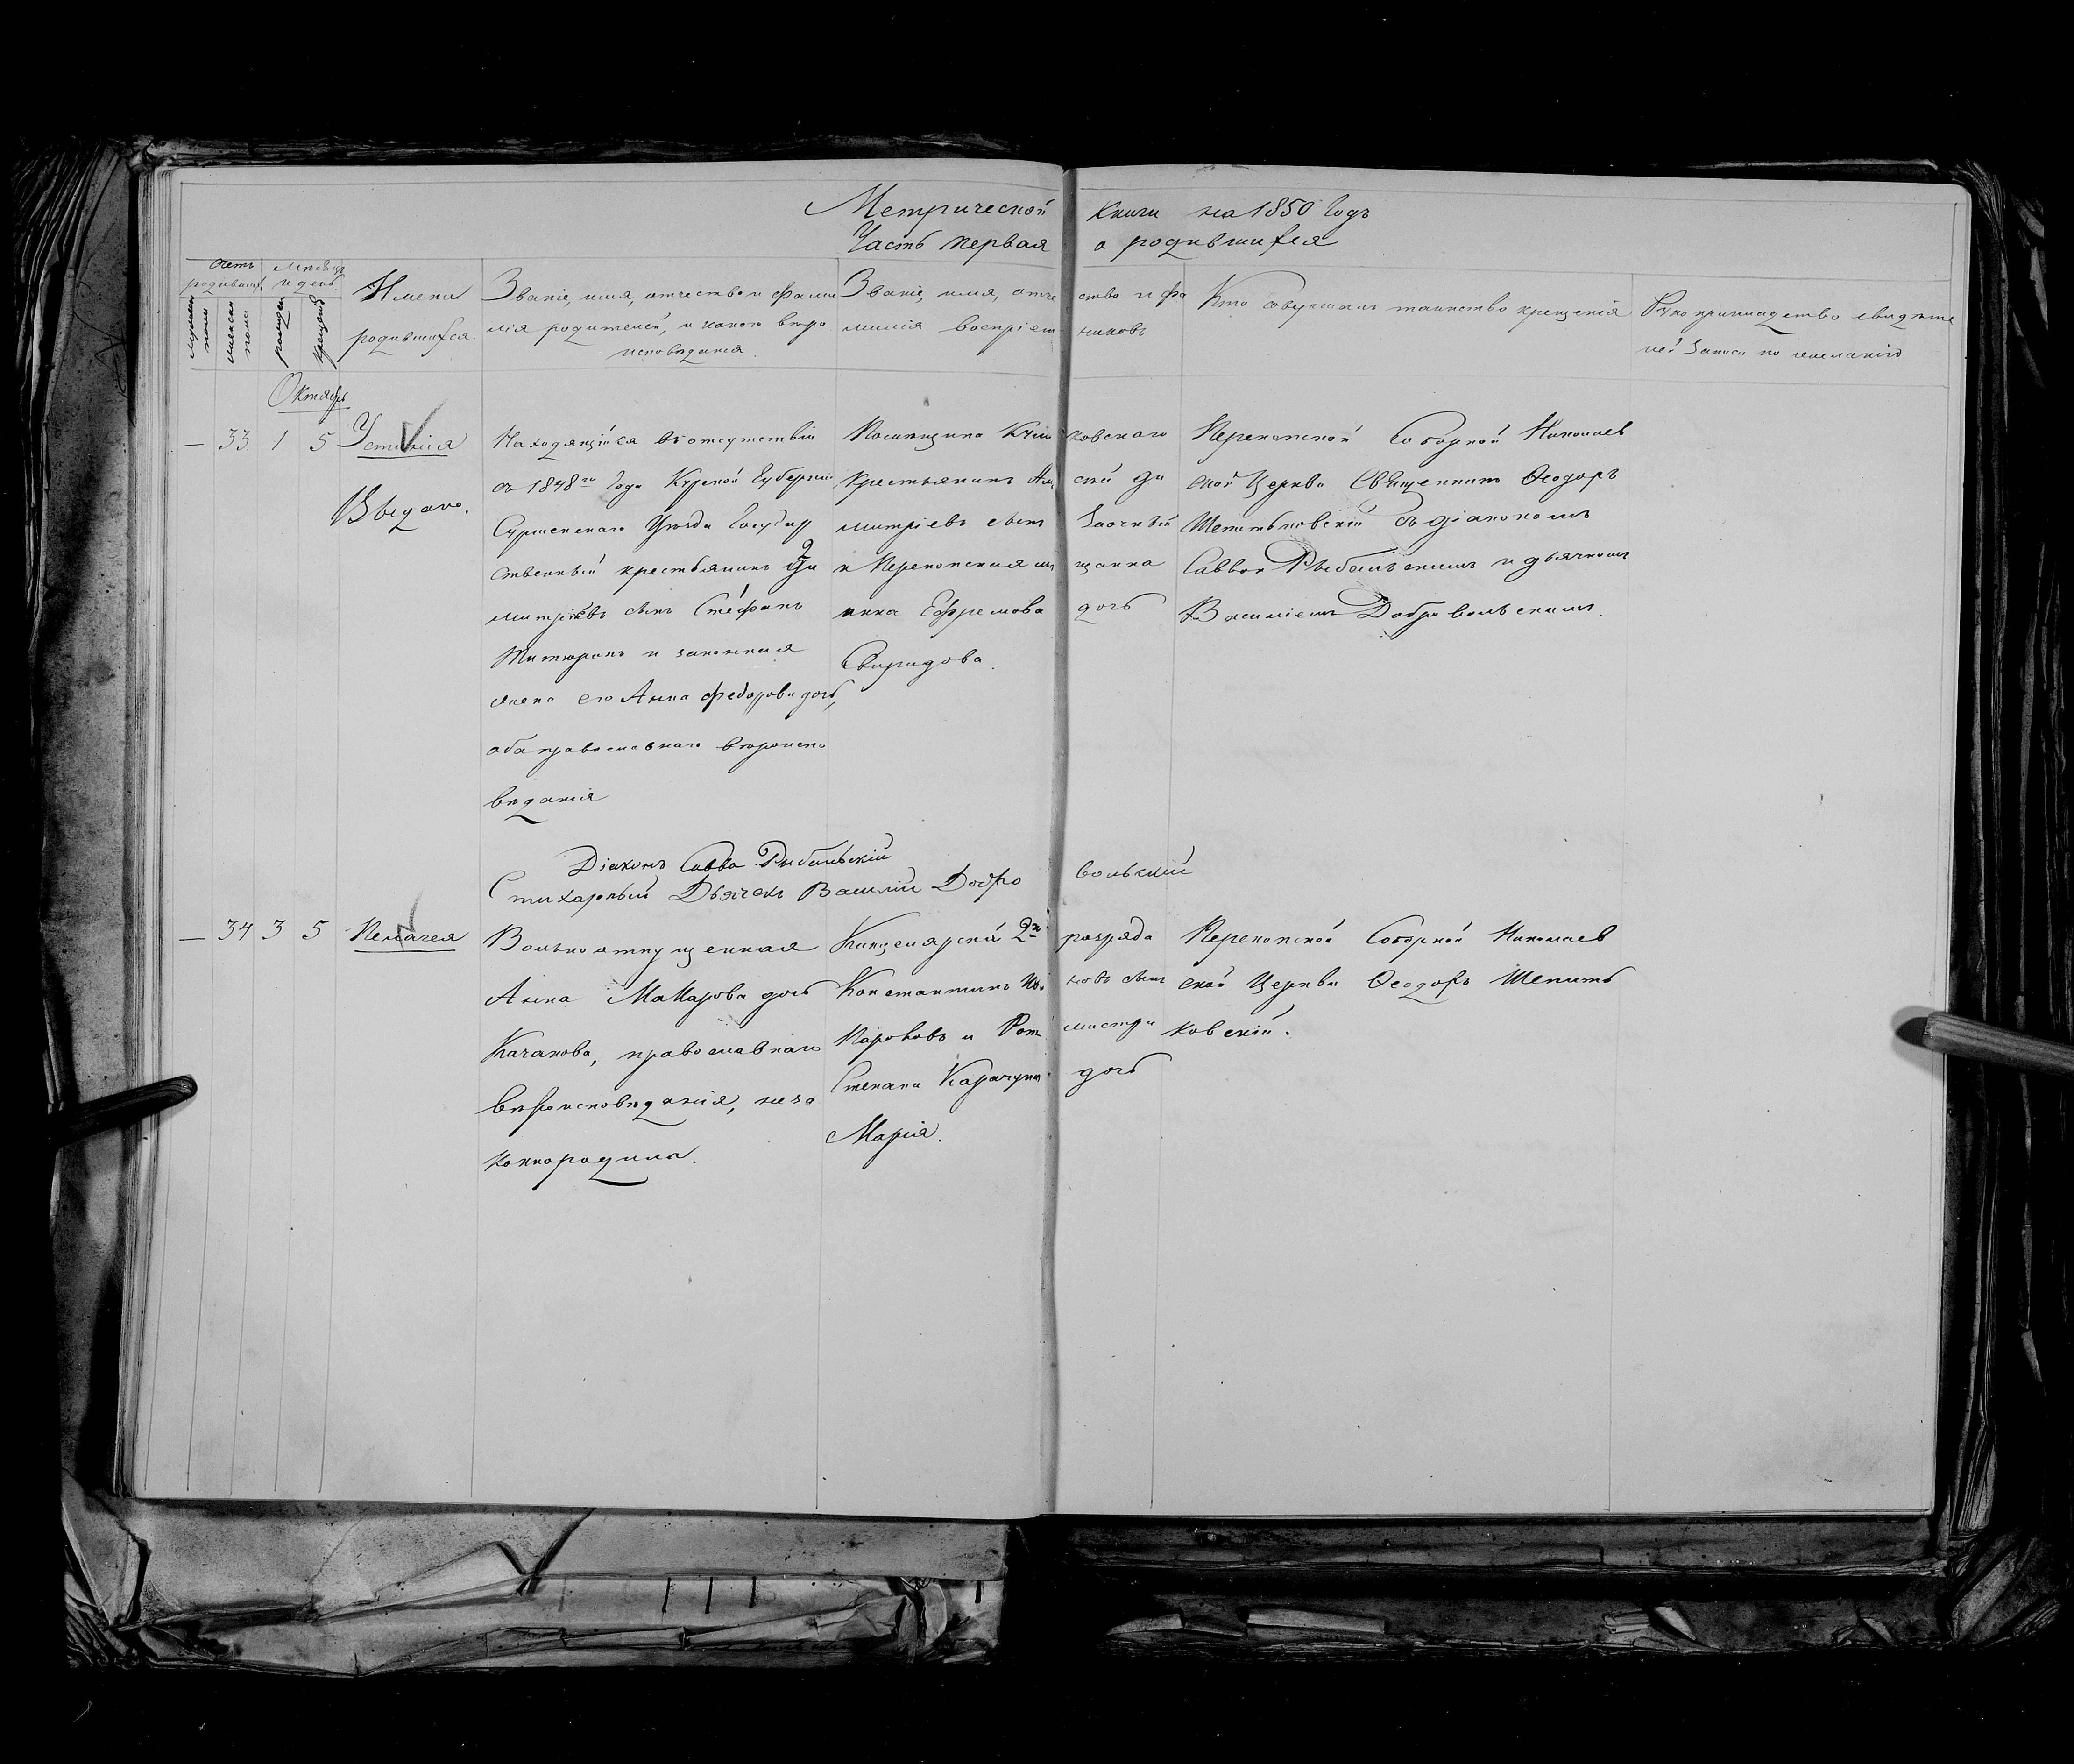 Метрической книги на 1850 годъ
Часть первая о родившихся
Счетъ родившихся
Мѣсяцъ и день
мужеска пола
женска пола
рожденія
крещенія
Имена
родившихся
Званіе, имя, отчество и фами
лія родителей, и какого вѣро
исповѣданія.
Званіе, имя, отче ство и фа
милія воспріем никовъ
Кто совершалъ таинство крещенія
Рукоприкладство свидѣте
лей записи по желанію
Октябрь
— 33 1 5 Устинія
Выдано.
Находящійся въ отсутствіи
съ 1848го года Курской Губерніи
Уѣзда Государ
ственный крестьянинъ Ди
митріевъ сынъ Стефанъ
и законная
жена его Анна Федорова дочь,
оба православнаго вѣроиспо
вѣданія
Помѣщика ковскаго
крестьянинъ Ди
митріевъ сынъ
и Перекопская мѣ щанка
Ефремова дочь
Свиридова.
Перекопской Соборной Николаев
ской Церкви Священникъ Ѳеодоръ
Шепитьковскій съ діакономъ
Саввою Рыбальскимъ и дьячкомъ
Василіемъ Добровольскимъ.
Діаконъ Савва Рыбальскій
Стихарный Дьячекъ Василій Добро вольскій
— 34 3 5 Пелагея
Вольноотпущенная
Анна Макарова дочь
Качанова, православнаго
вѣроисповѣданія, неза
коннорадила.
Канцелярскій 2го разряда
Константинъ Ива новъ сынъ
и Рот мистра
Степана дочь
Марія.
Перекопской Соборной Николаев
ской Церкви Ѳеодоръ Шепить
ковскій.